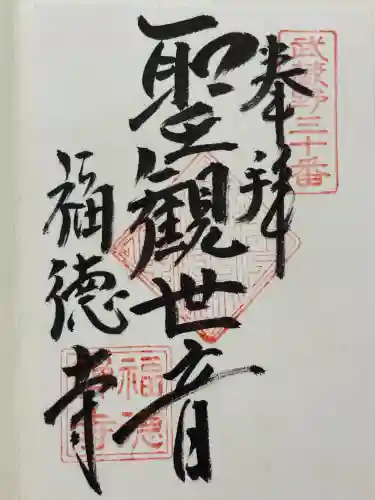 武蔵野三十番
奉拝
聖觀世音
福德寺
福德
寺